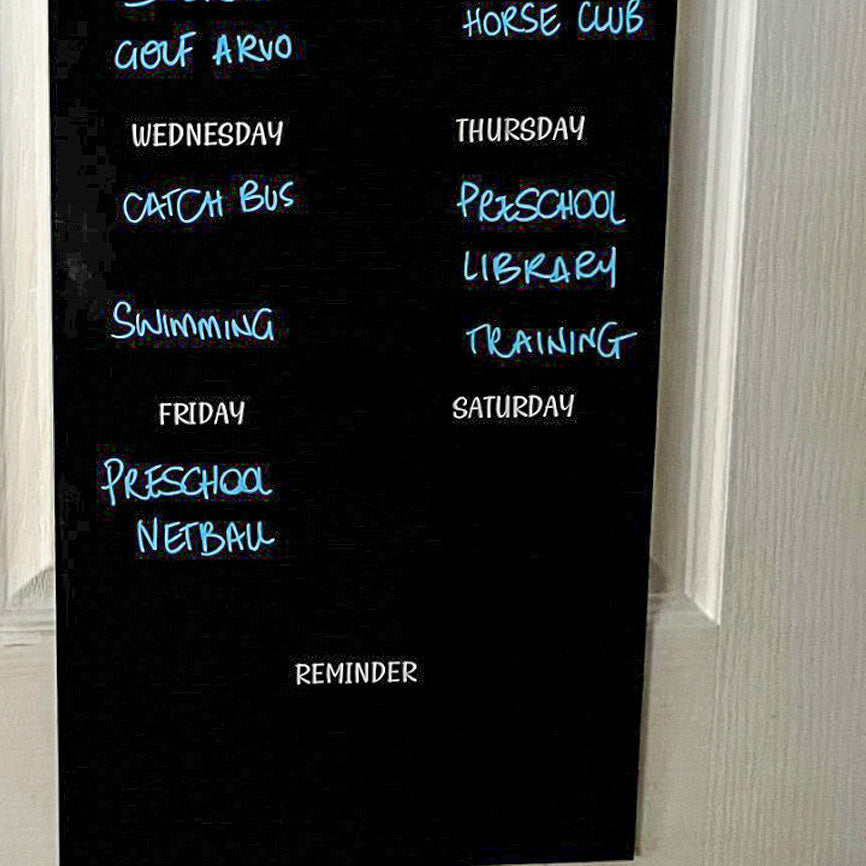 GOLF ARVO
HORSE CLUB
WEDNESDAY
CATCH BUS
SWIMMING
THURSDAY
PRESCHOOL
LIBRARY
TRAINING
FRIDAY
PRESCHOOL
NETBALL
SATURDAY
REMINDER